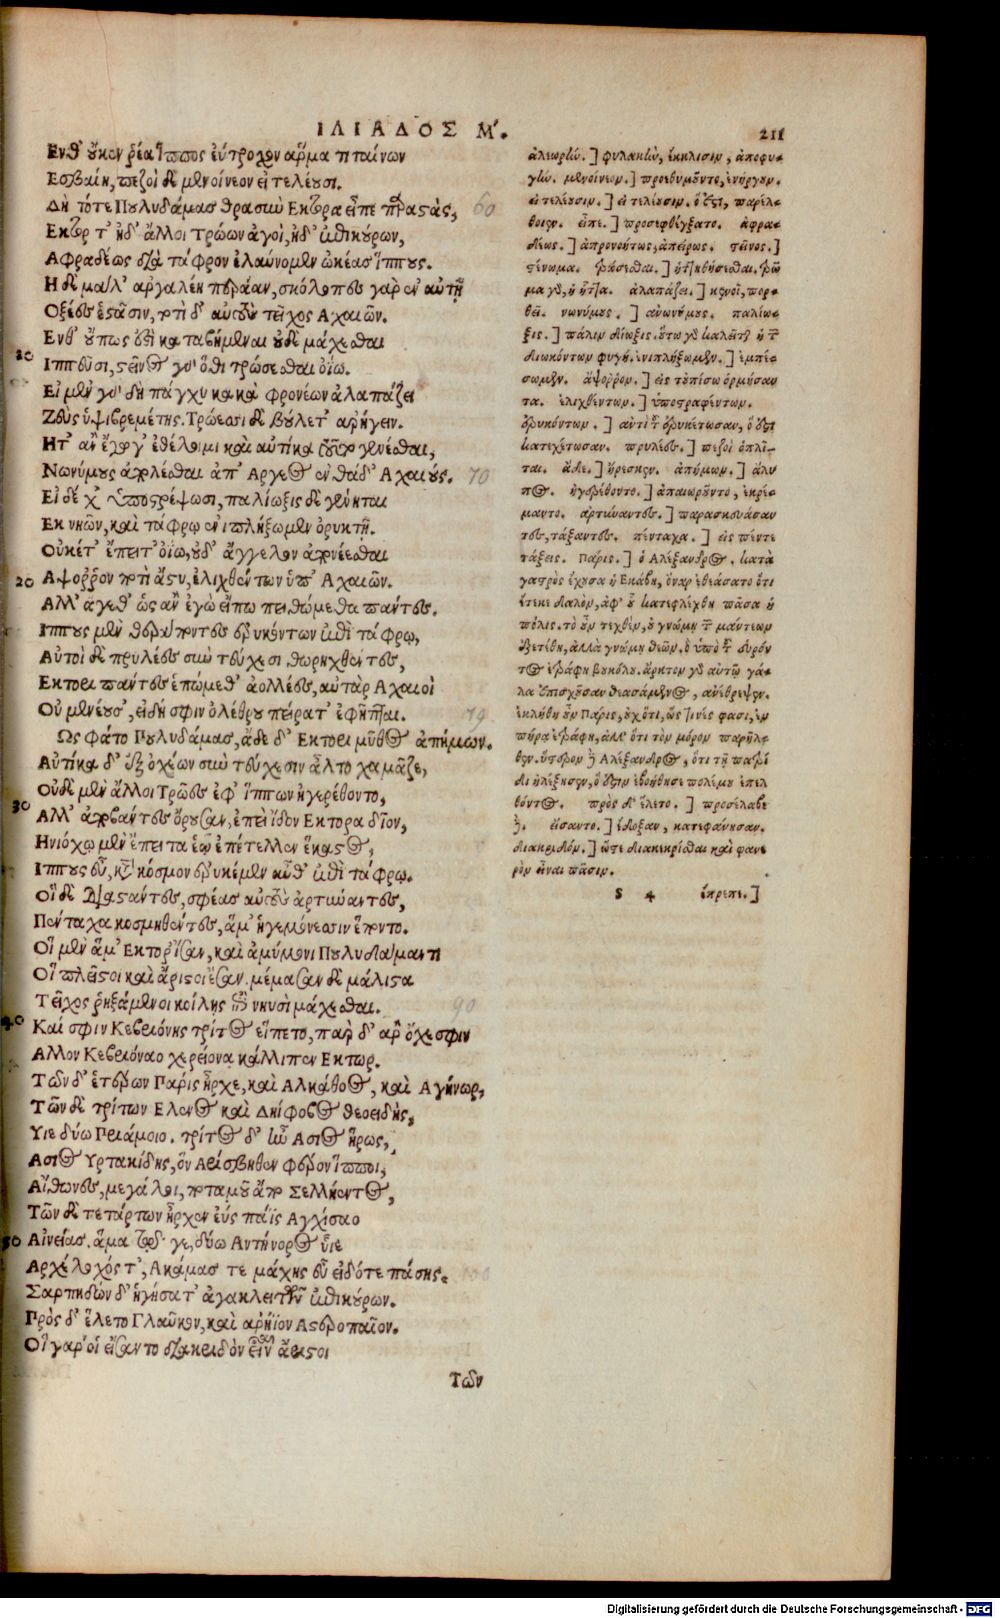 ΙΛΙΑΔΟΣ Μ.
211
Ενθ' οὔκεν ῥέα ἵππος ἐύτροχον ἅρμα τιταίνων
Εσβαίη, πεζοὶ δὲ μενοίνεον εἰ τελέουσι.
Δὴ τότε Πουλυδάμας θρασὺν Εκτορα εἶπε παραστάς,
60
Εκτορ τ' ἠδ' ἄλλοι Τρώων ἀγοὶ, ἠδ' ἐπικούρων,
Αφραδέως διὰ τάφρον ἐλαύνομεν ὠκέας ἵππους.
Η δὲ μάλ' ἀργαλέη περάαν, σκόλοπες γὰρ ἐν αὐτῇ
Οξέες ἑστᾶσιν, ποτὶ δ' αὐτοὺς τεῖχος Αχαιῶν.
Ενθ' οὔπως ἐστὶ καταβήμεναι οὐδὲ μάχεσθαι
Ιππεῦσι, στεῖνος γὰρ ὅθι τρώσεσθαι ὀΐω.
Εἰ μὲν γὰρ δὴ πάγχυ κακὰ φρονέων ἀλαπάζει
Ζεὺς ὑψιβρεμέτης. Τρώεσσι δὲ βούλετ' ἀρήγειν.
Ητ' ἂν ἔγωγ' ἐθέλοιμι καὶ αὐτίκα τοῦτο γενέσθαι,
Νωνύμους ἀπολέσθαι ἀπ' Αργεος ἐνθάδ' Αχαιούς.
70
Εἰ δέ χ' ὑποστρέψωσι, παλίωξις δὲ γένηται
Εκ νηῶν, καὶ τάφρῳ ἐνιπλήξωμεν ὀρυκτῇ.
Οὐκέτ' ἔπειτ' ὀίω, οὐδ' ἄγγελον ἀπονέεσθαι
20
Αψοῤῥον ποτὶ ἄστυ, ἑλιχθέντων ὑπ' Αχαιῶν.
Αλλ' ἄγεθ' ὡς ἂν ἐγὼ εἴπω πειθώμεθα πάντες.
Ιππους μὲν θεράποντες ἐρυκόντων ἐπὶ τάφρῳ,
Αὐτοὶ δὲ πρυλέες σὺν τεύχεσι θωρηχθέντες,
Εκτορι πάντες ἑπώμεθ' ἀολλέες, αὐτὰρ Αχαιοὶ
Οὐ μενέουσ', εἰ δή σφιν ὀλέθρου πείρατ' ἐφῆπται.
Ως φάτο Πουλυδάμας, ἅδε δ' Εκτορι μῦθος ἀπήμων.
Αὐτίκα δ' ἐξ ὀχέων σὺν τεύχεσιν ἆλτο χαμᾶζε,
Οὐδὲ μὲν ἄλλοι Τρῶες ἐφ' ἵππων ἠγερέθοντο,
30
Αλλ' ἀποβάντες ὄρουσαν, ἐπεὶ ἴδον Εκτορα δῖον,
Ηνιόχῳ μὲν ἔπειτα ἑῷ ἐπέτελλον ἕκαστος,
Ιππους εὖ, κατὰ κόσμον ἐρυκέμεν αὖθ' ἐπὶ τάφρῳ.
Οἳ δὲ διαστάντες, σφέας αὐτοὺς ἀρτύναντες,
Πένταχα κοσμηθέντες, ἅμ' ἡγεμόνεσσιν ἕποντο.
Οἱ μὲν ἅμ' Εκτορ' ἴσαν, καὶ ἀμύμονι Πουλυδάμαντι
Οἳ πλεῖστοι καὶ ἄριστοι ἔσαν. μέμασαν δὲ μάλιστα
Τεῖχος ῥηξάμενοι κοίλης ἐπὶ νηυσὶ μάχεσθαι.
90
40
Καί σφιν Κεβριόνης τρίτος εἵπετο, παρ δ' ἄρ ὄχεσφιν
Αλλον Κεβριόναο χερείονα κάλλιπεν Εκτωρ.
Τῶν δ' ἑτέρων Πάρις ἦρχε, καὶ Αλκάθοος, καὶ Αγήνωρ,
Τῶν δὲ τρίτων Ελενος καὶ Δηίφοβος θεοειδής,
Υἷε δύω Πριάμοιο. τρίτος δ' ἦν Ασιος ἥρως,
Ασιος Υρτακίδης, ὃν Αρίσβηθεν φέρον ἵπποι,
Αἴθωνες, μεγάλοι, ποταμοῦ ἄπο Σελλήεντος,
Τῶν δὲ τετάρτων ἦρχεν ἐῢς παῖς Αγχίσαο
50
Αἰνείας. ἅμα τῷ γε, δύω Αντήνορος υἷε
Αρχέλοχός τ', Ακάμας τε μάχης εὖ εἰδότε πάσης.
Σαρπηδὼν δ' ἡγήσατ' ἀγακλειτῶν ἐπικούρων.
Πρὸς δ' ἕλετο Γλαῦκον, καὶ ἀρήϊον Αστεροπαῖον.
Οἳ γάρ οἱ εἴσαντο διακριδὸν εἶναι ἄριστοι
Τῶν
ἀλεωρὴν. ] φυλακὴν, ἔκκλισιν, ἀποφυ-
γὴν. μενοίνεον. ] προεθυμοῦντο, ἐνήργουν.
εἰ τελέουσιν. ] εἰ τελέουσιν. ὅ ἐστι, παρέλ-
θοιεν. εἶπε. ] προσεφθέγξατο. ἀφρα-
δέως. ] ἀπρονοήτως, ἀπείρως. στεῖνος. ]
στένωμα.
μα γὰρ, ἡ ἧττα. ἀλαπάζει. ] κενοῖ, πορ-
θεῖ. νωνύμους. ] ἀνωνύμους. παλίω-
ξις. ] πάλιν δίωξις. οὕτω γὰρ καλεῖται ἡ τῶν
διωκόντων φυγή. ἐνιπλήξωμεν. ] ἐμπέ-
σωμεν. ἄψορρον. ] εἰς τοὐπίσω ὁρμήσαν
τα. ἑλιχθέντων. ] ὑποστραφέντων.
ἐρυκόντων. ] ἀντὶ τοῦ ἐρυκέτωσαν, ὅ ἐστι
κατεχέτωσαν. πρυλέες. ] πεζοὶ ὁπλῖ-
ται. ἅδε. ] ἤρεσκεν. ἀπήμων. ] ἄλυ
πος. ἠγερέθοντο. ] ἀπαιωροῦντο, ἐκρέ-
μαντο. ἀρτύναντες. ] παρασκευάσαν
τες, τάξαντες. πένταχα. ] εἰς πέντε
τάξεις. Πάρις. ] ὁ Αλέξανδρος. κατὰ
γαστρὸς ἔχουσα ἡ Εκάβη, ὄναρ ἐθεάσατο ὅτι
ἔτεκε δαλὸν, ἀφ' οὗ κατεφλέχθη πᾶσα ἡ
πόλις. τὸ οὖν τεχθὲν, οὐ γνώμῃ τῶν μάντεων
ἐξετέθη, ἀλλὰ γνώμῃ θεῶν. ὃ ὑπὸ τοῦ εὑρόν
τος ἐτράφη βουκόλου. ἄρκτον γὰρ αὐτῷ γά-
λα ἐπισχοῦσαν θεασάμενος, ἀνέθρεψεν.
ἐκλήθη οὖν Πάρις, οὐχ ὅτι, ὥς τινές φασι, ἐν
πήρᾳ ἐτράφη, ἀλλ' ὅτι τὸν μόρον παρῆλ-
θεν. ὕστερον δὲ Αλέξανδρος, ὅτι τῇ πατρί
δι ἠλέξησεν, ὅ ἐστιν ἐβοήθησε πολέμου ἐπελ
θόντος. πρὸς δ' ἕλετο. ] προσέλαβε
δέ. εἴσαντο. ] ἔδοξαν, κατεφάνησαν.
διακριδόν. ] ὥστε διακεκρίσθαι καὶ φανε
ρὸν εἶναι πᾶσιν.
s 4 ἔκρεπε. ]
Digitalisierung gefördert durch die Deutsche Forschungsgemeinschaft - DFG